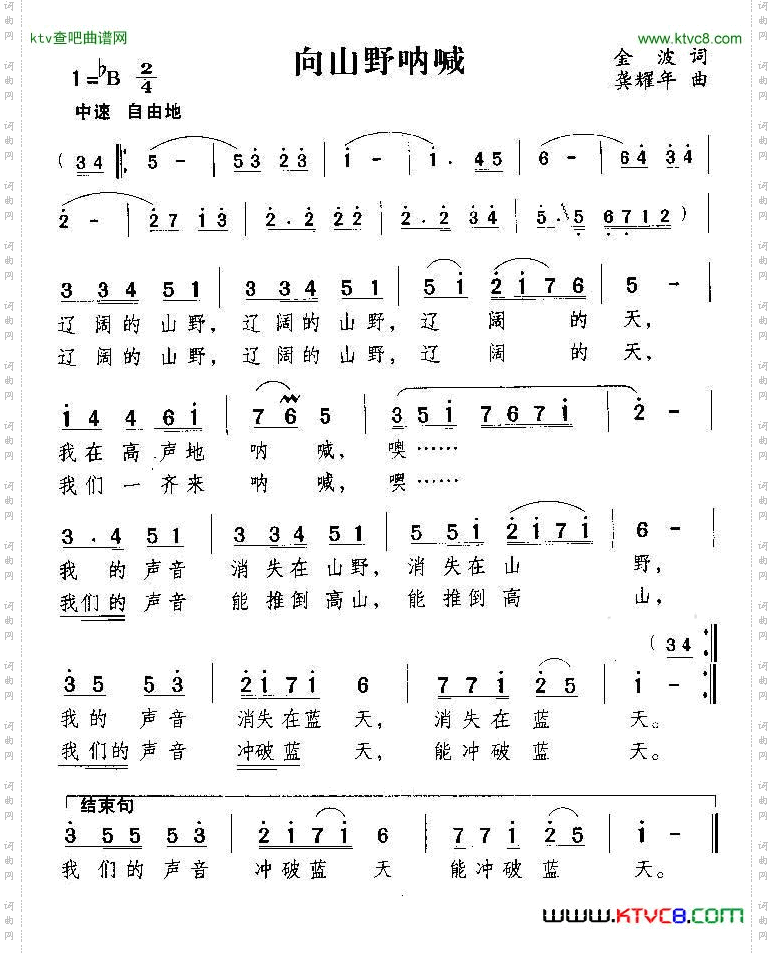 ktv查吧曲谱网
www.ktvc8.com
向山野呐喊
金波 词
龚耀年 曲
1=♭B 2/4
中速 自由地
(3 4 5 - 5 3 2 3 1 - 1. 4 5 6 - 6 4 3 4
2 - 2 7 1 3 2. 2 2 2 2. 2 3 4 5. 5 6 7 1 2)
3 3 4 5 1 3 3 4 5 1 5 1 2 1 7 6 5 -
辽阔的山野,辽阔的山野,辽 阔 的 天,
辽阔的山野,辽阔的山野,辽 阔 的 天,
1 4 4 6 1 7 6 5 3 5 1 7 6 7 1 2 -
我在高声地 呐 喊, 噢……
我们一齐来 呐 喊, 噢……
3. 4 5 1 3 3 4 5 1 5 5 1 2 1 7 1 6 -
我 的声音 消失在山野,消失在山 野,
我们的声音 能推倒高山,能推倒高 山,
(3 4
3 5 5 3 2 1 7 1 6 7 7 1 2 5 1 -
我的 声音 消失在蓝 天, 消失在蓝 天。
我们的声音 冲破蓝 天, 能冲破蓝 天。
结束句
3 5 5 5 3 2 1 7 1 6 7 7 1 2 5 1 -
我们的声音 冲破蓝 天 能冲破蓝 天。
www.KTVC8.com
词曲网